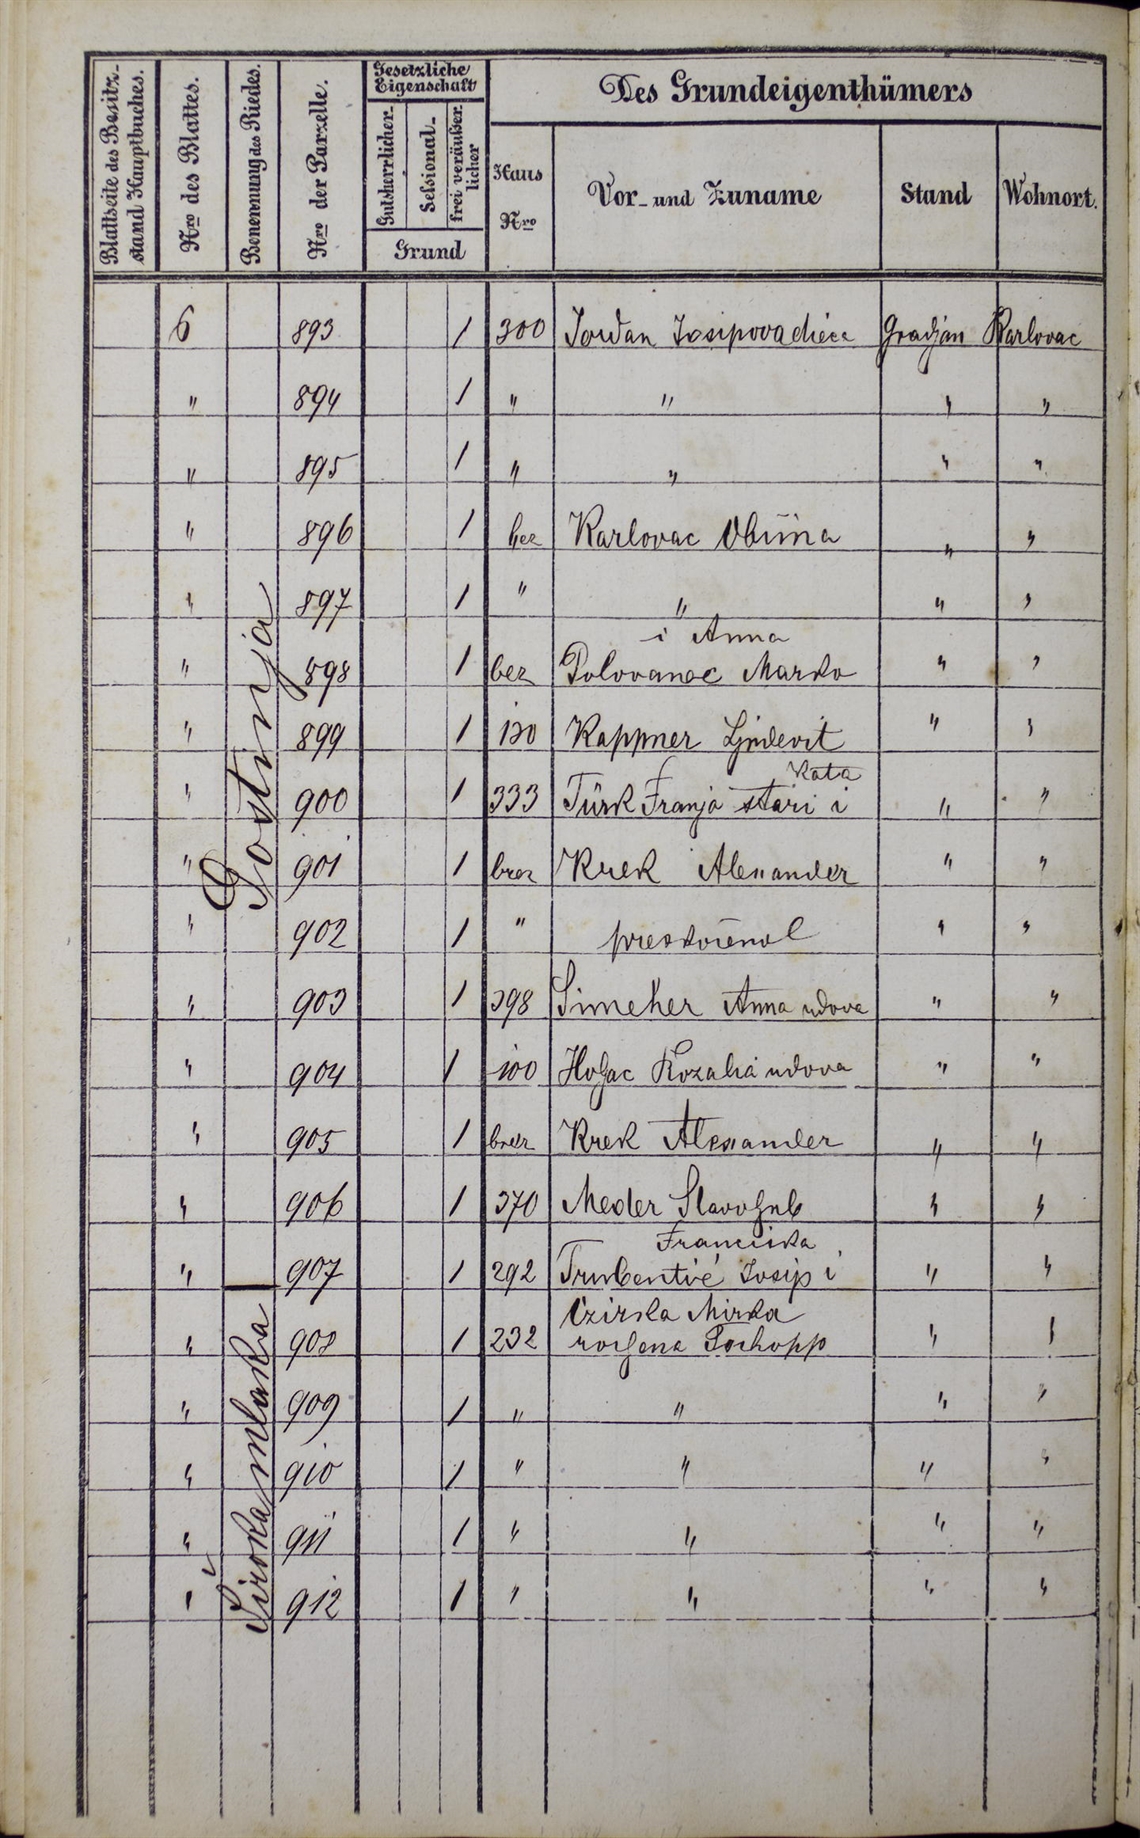 Blattseite des Besitz-
stand Hauptbuches.
Nro des Blattes.
Benennung des Riedes.
Nro der Parzelle.
Gesetzliche
Eigenschaft
Gutsherrlicher-
Sessional-
frei veräußer-
licher
Grund
Des Grundeigenthümers
Haus
Nro
Vor- und Zuname
Stand
Wohnort.
6 893 1 300 Jordan Josipova Gradjan Karlovac
" 894 1 " " " "
" 895 1 " " " "
" 896 1 bez Karlovac Obćina " "
" 897 1 " " " "
i Anna
" 898 1 bez Polovanec Marko " "
" 899 1 130 Kappner Ljudevit " "
Kata
" 900 1 333 Türk Franjo stari i " "
" 901 1 Krek Alexander " "
" 902 1 " " "
" 903 1 398 Simeker Anna udova " "
" 904 1 100 Holjac Rozalia udova " "
" 905 1 Krek Alexander " "
" 906 1 370 Meder Slavoljub " "
Franciska
" 907 1 292 Josip i " "
Mirka
" 908 1 232 rodjena " "
" 909 1 " " " "
" 910 1 " " " "
" 911 1 " " " "
" 912 1 " " " "
Gostinja
Široka mlaka